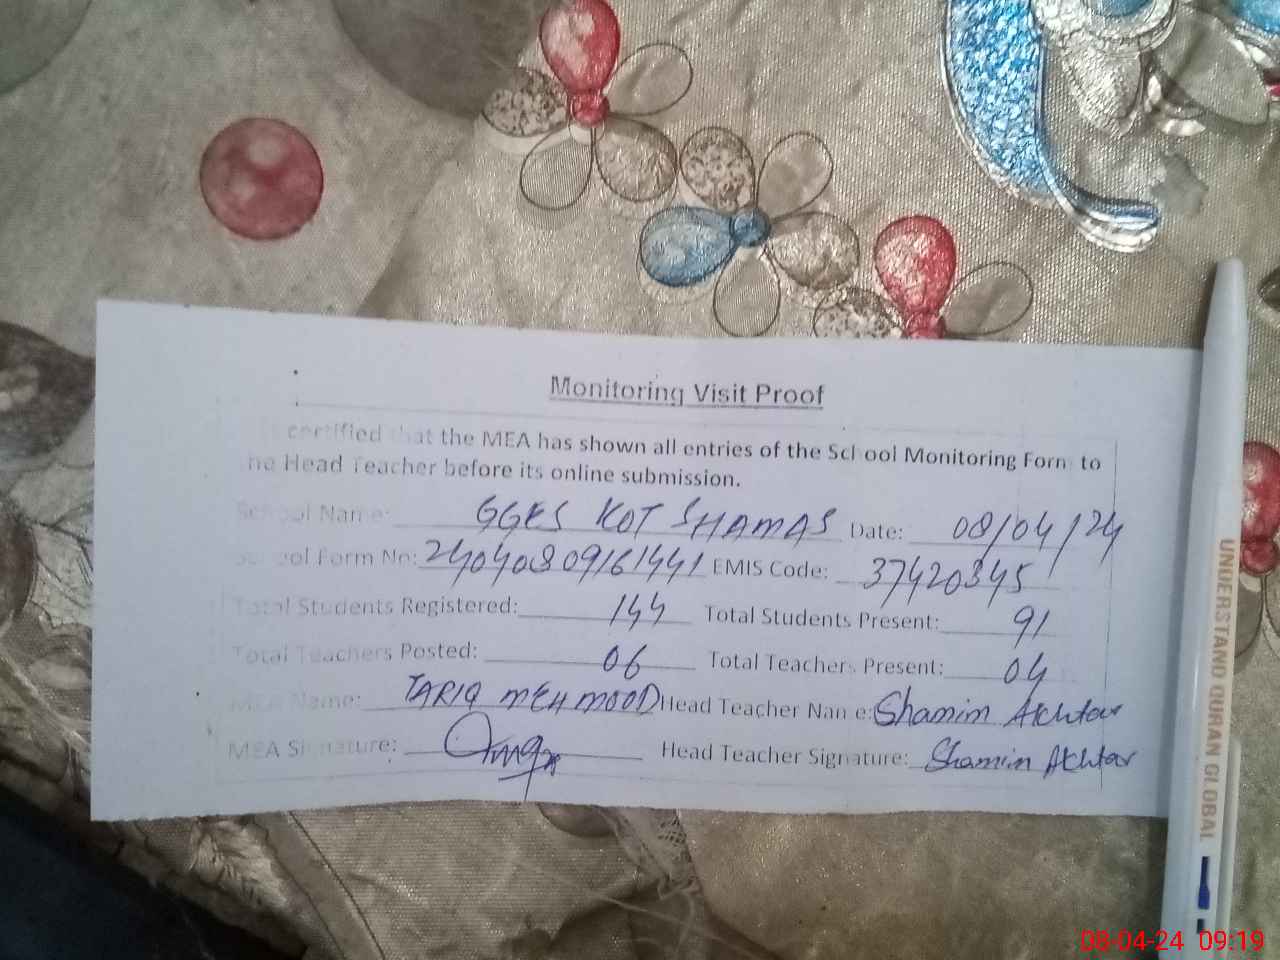 Monitoring Visit Proof
certified that the MEA has shown all entries of the School Monitoring Form to
he Head Teacher before its online submission.
School Name: GGES KOT SHAMAS Date: 08/04/24
School Form No: 24040809161441 EMIS Code: 37420345
Total Students Registered: 144 Total Students Present: 91
Total Teachers Posted: 06 Total Teachers Present: 04
MEA Name: TARIQ MEHMOOD Head Teacher Name: Shamim Akhtar
MEA Signature: Head Teacher Signature: Shamim Akhtar
UNDERSTAND QURAN GLOBAL
08-04-24 09:19